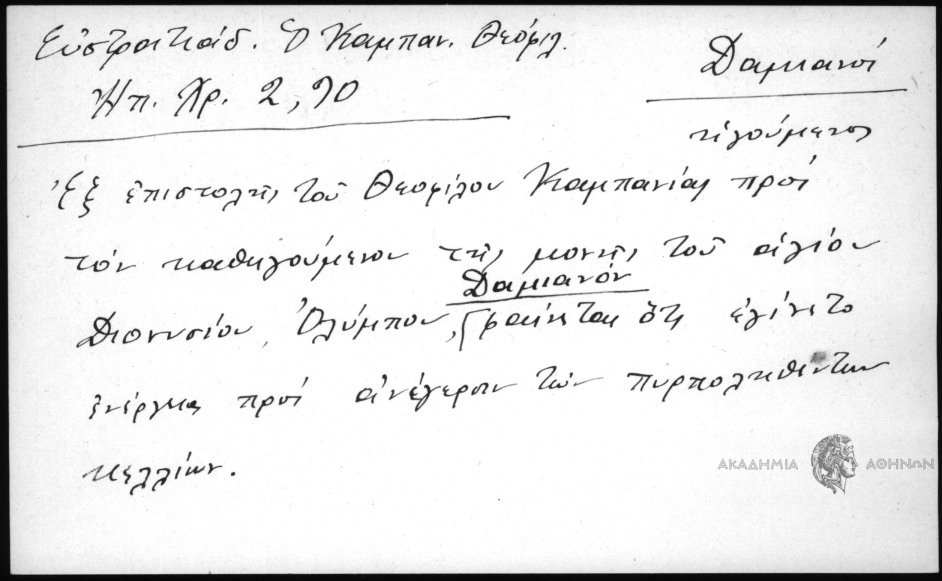 Εὐστρατιάδ. Ὁ Καμπαν. Θεόφιλ.
Ἠπ. Χρ. 2, 90
Δαμιανός
ἡγούμενος
Ἐξ ἐπιστολῆς τοῦ Θεοφίλου Καμπανίας πρός
τὸν καθηγούμενον τῆς μονῆς τοῦ ἁγίου
Διονυσίου Ὀλύμπου, Δαμιανόν φαίνεται ὅτι ἐγίνετο
ἐνέργεια πρός ἀνέγερσιν τῶν πυρποληθέντων
κελλίων.
ΑΚΑΔΗΜΙΑ ΑΘΗΝΩΝ